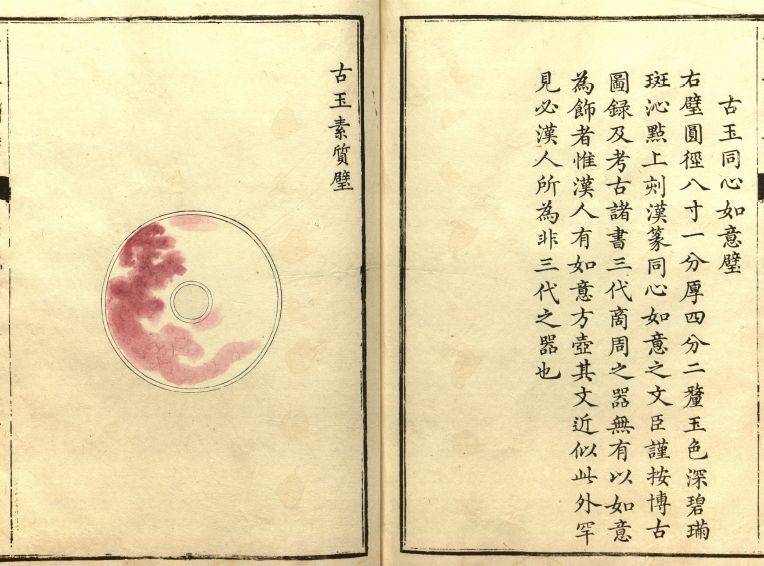 古玉同心如意璧
右璧圓徑八寸一分厚四分二釐玉色深碧瑞
斑沁點上刻漢篆同心如意之文臣謹按博古
圖録及考古諸書三代商周之器無有以如意
為飾者惟漢人有如意方壺其文近似此外罕
見必漢人所為非三代之器也
古玉素質璧